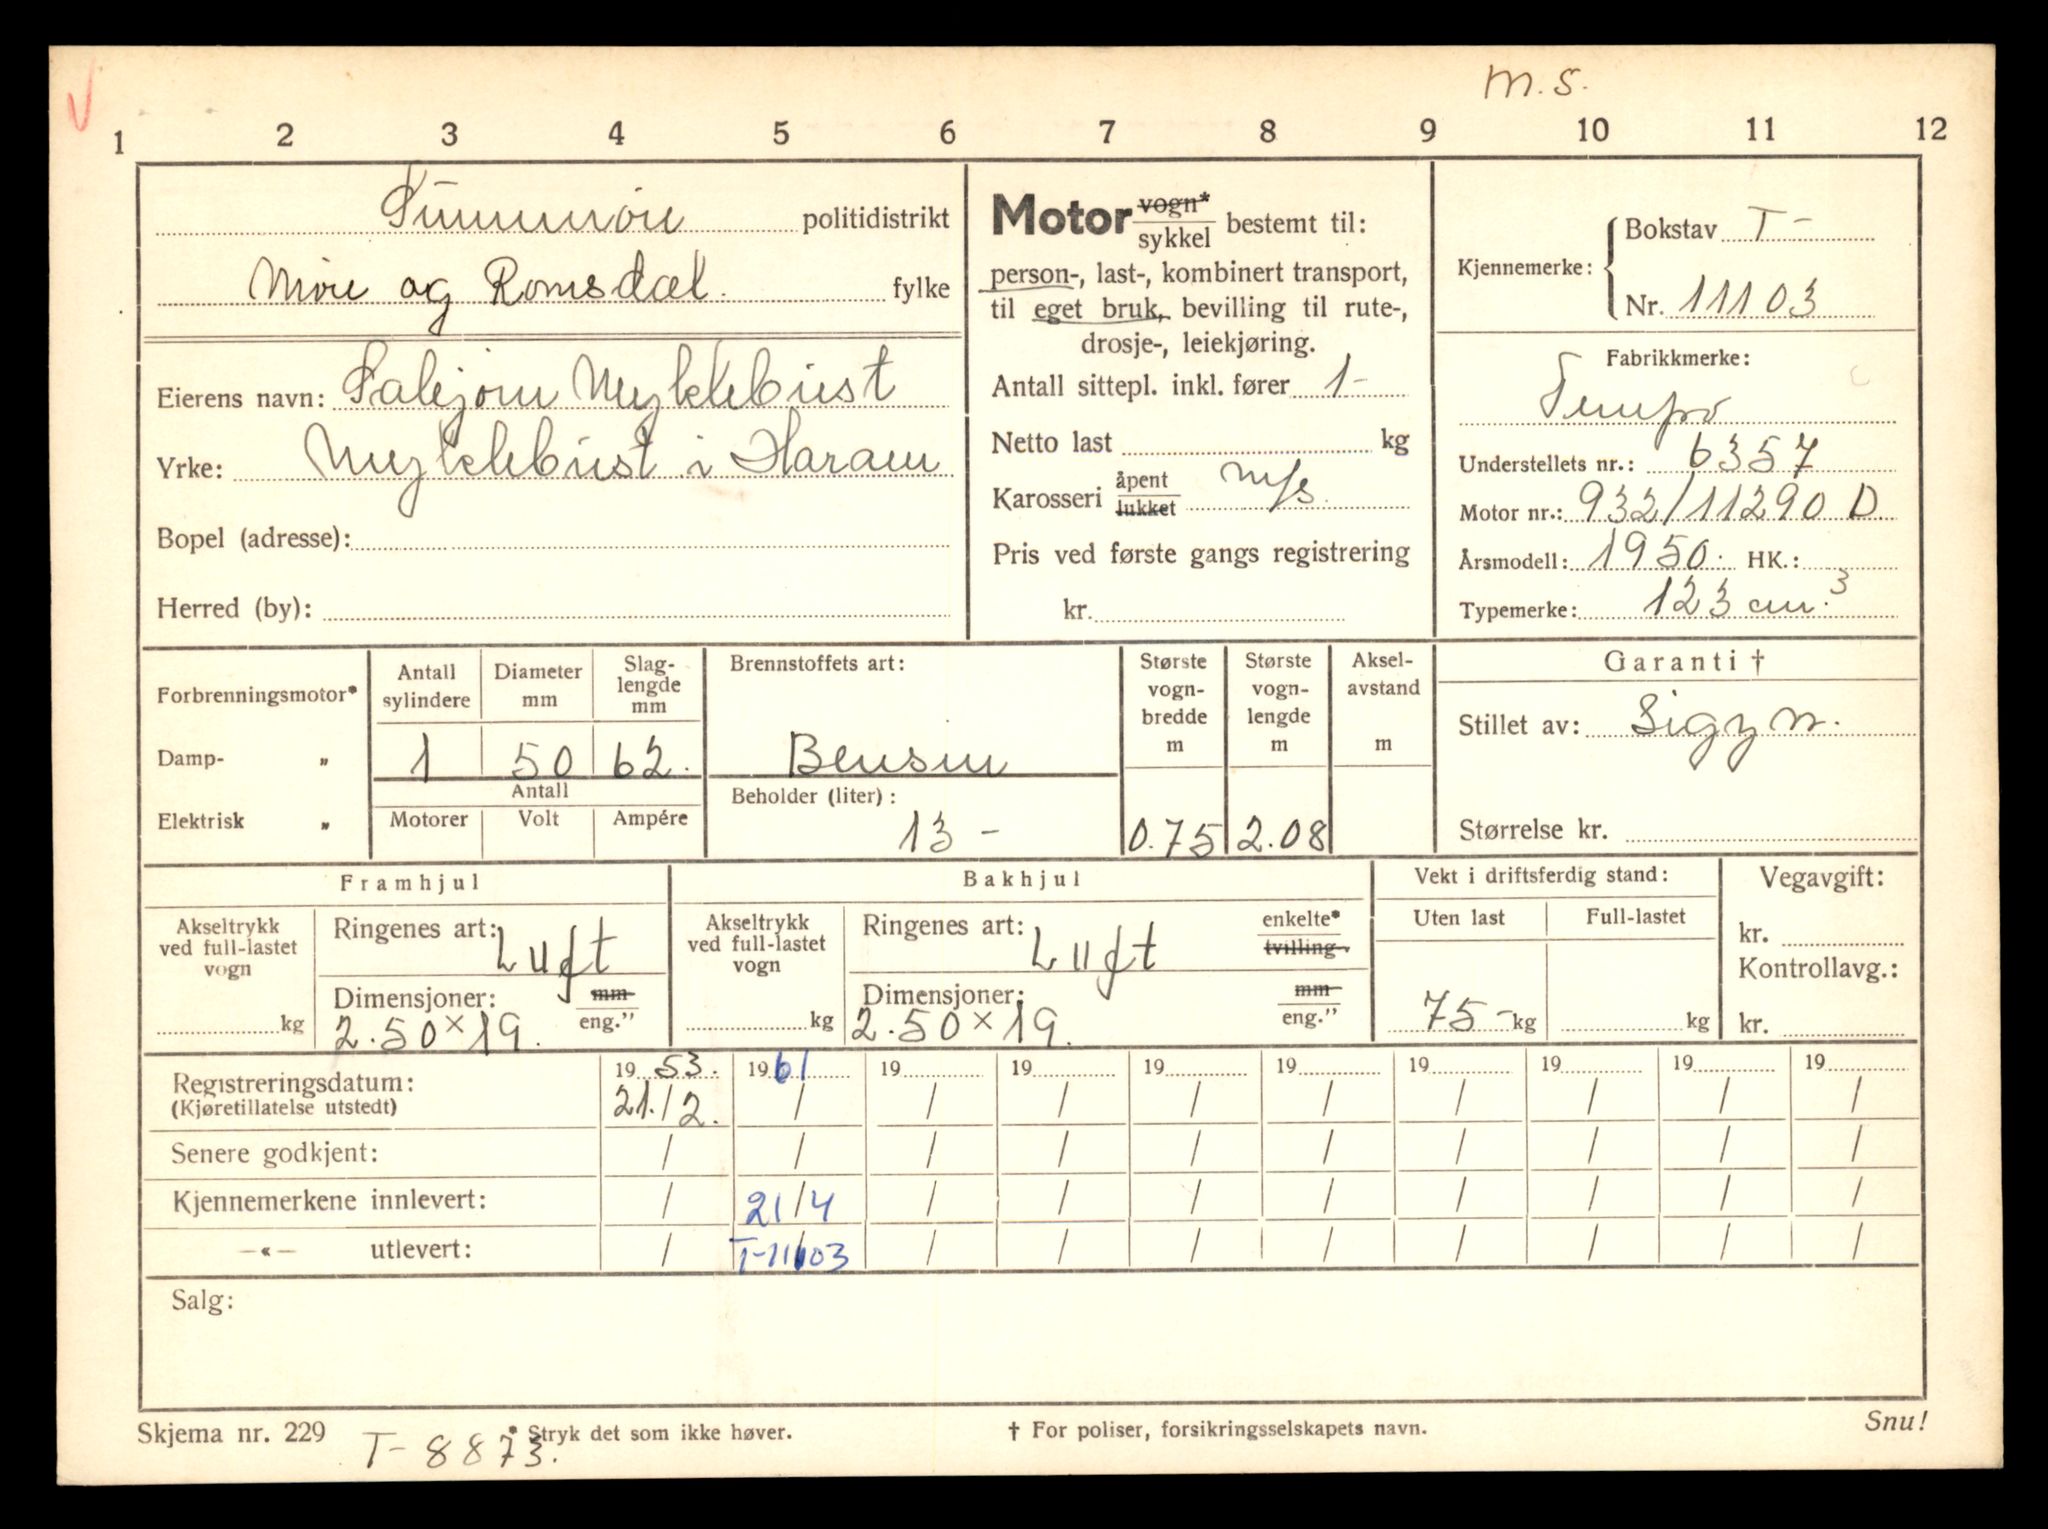 m.s.
1 2 3 4 5 6 7 8 9 10 11 12
Sunnmøre politidistrikt
Møre og Romsdal. fylke
Eierens navn: Myklebust
Yrke: Myklebust i Haram
Bopel (adresse):
Herred (by):
Motor vogn* sykkel bestemt til:
person-, last-, kombinert transport,
til eget bruk, bevilling til rute-,
drosje-, leiekjøring.
Antall sittepl. inkl. fører 1-
Netto last kg
Karosseri åpent lukket m/s.
Pris ved første gangs registrering
kr.
Kjennemerke: Bokstav T-
Nr. 11103
Fabrikkmerke:
Tempo
Understellets nr.: 6357
Motor nr.: 932/11290 D
Årsmodell: 1950. HK.:
Typemerke: 123 cm.³
Forbrenningsmotor*
Damp- „
Elektrisk „
Antall sylindere
Diameter mm
Slag-
lengde
mm
1 50 62.
Antall
Motorer Volt Ampére
Brennstoffets art:
Bensin
Beholder (liter):
13 -
Største
vogn-
bredde
m
0.75
Største
vogn-
lengde
m
2.08
Aksel-
avstand
m
Garanti †
Stillet av: Sigyn.
Størrelse kr.
Framhjul
Akseltrykk
ved full-lastet
vogn
kg
Ringenes art: Luft
Dimensjoner: mm eng.”
2.50 × 19.
Bakhjul
Akseltrykk
ved full-lastet
vogn
kg
Ringenes art: Luft enkelte* tvilling-
Dimensjoner: mm eng.”
2.50 × 19.
Vekt i driftsferdig stand:
Uten last Full-lastet
75- kg kg
Vegavgift:
kr.
Kontrollavg.:
kr.
Registreringsdatum: 19 53. 19 61 19 19 19 19 19 19 19 19
(Kjøretillatelse utstedt) 21./2. / / / / / / / / /
Senere godkjent: / / / / / / / / / /
Kjennemerkene innlevert: / 21/4 / / / / / / / /
—«— utlevert: / T-11103 / / / / / / / /
Salg:
Skjema nr. 229 * Stryk det som ikke høver. † For poliser, forsikringsselskapets navn. Snu!
T-8873.